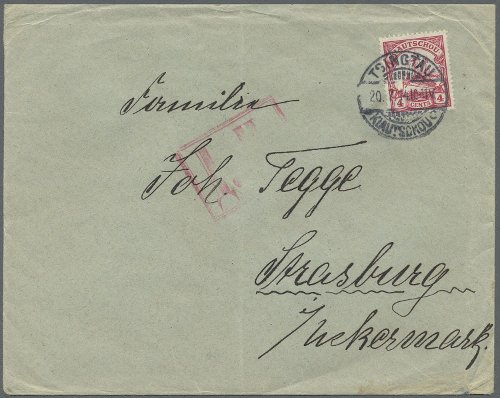 KIAUTSCHOU
4 CENTS 4
TSINGTAU
KIAUTSCHOU
Familie
Joh. Tegge.
Strasburg
i/Uckermark.